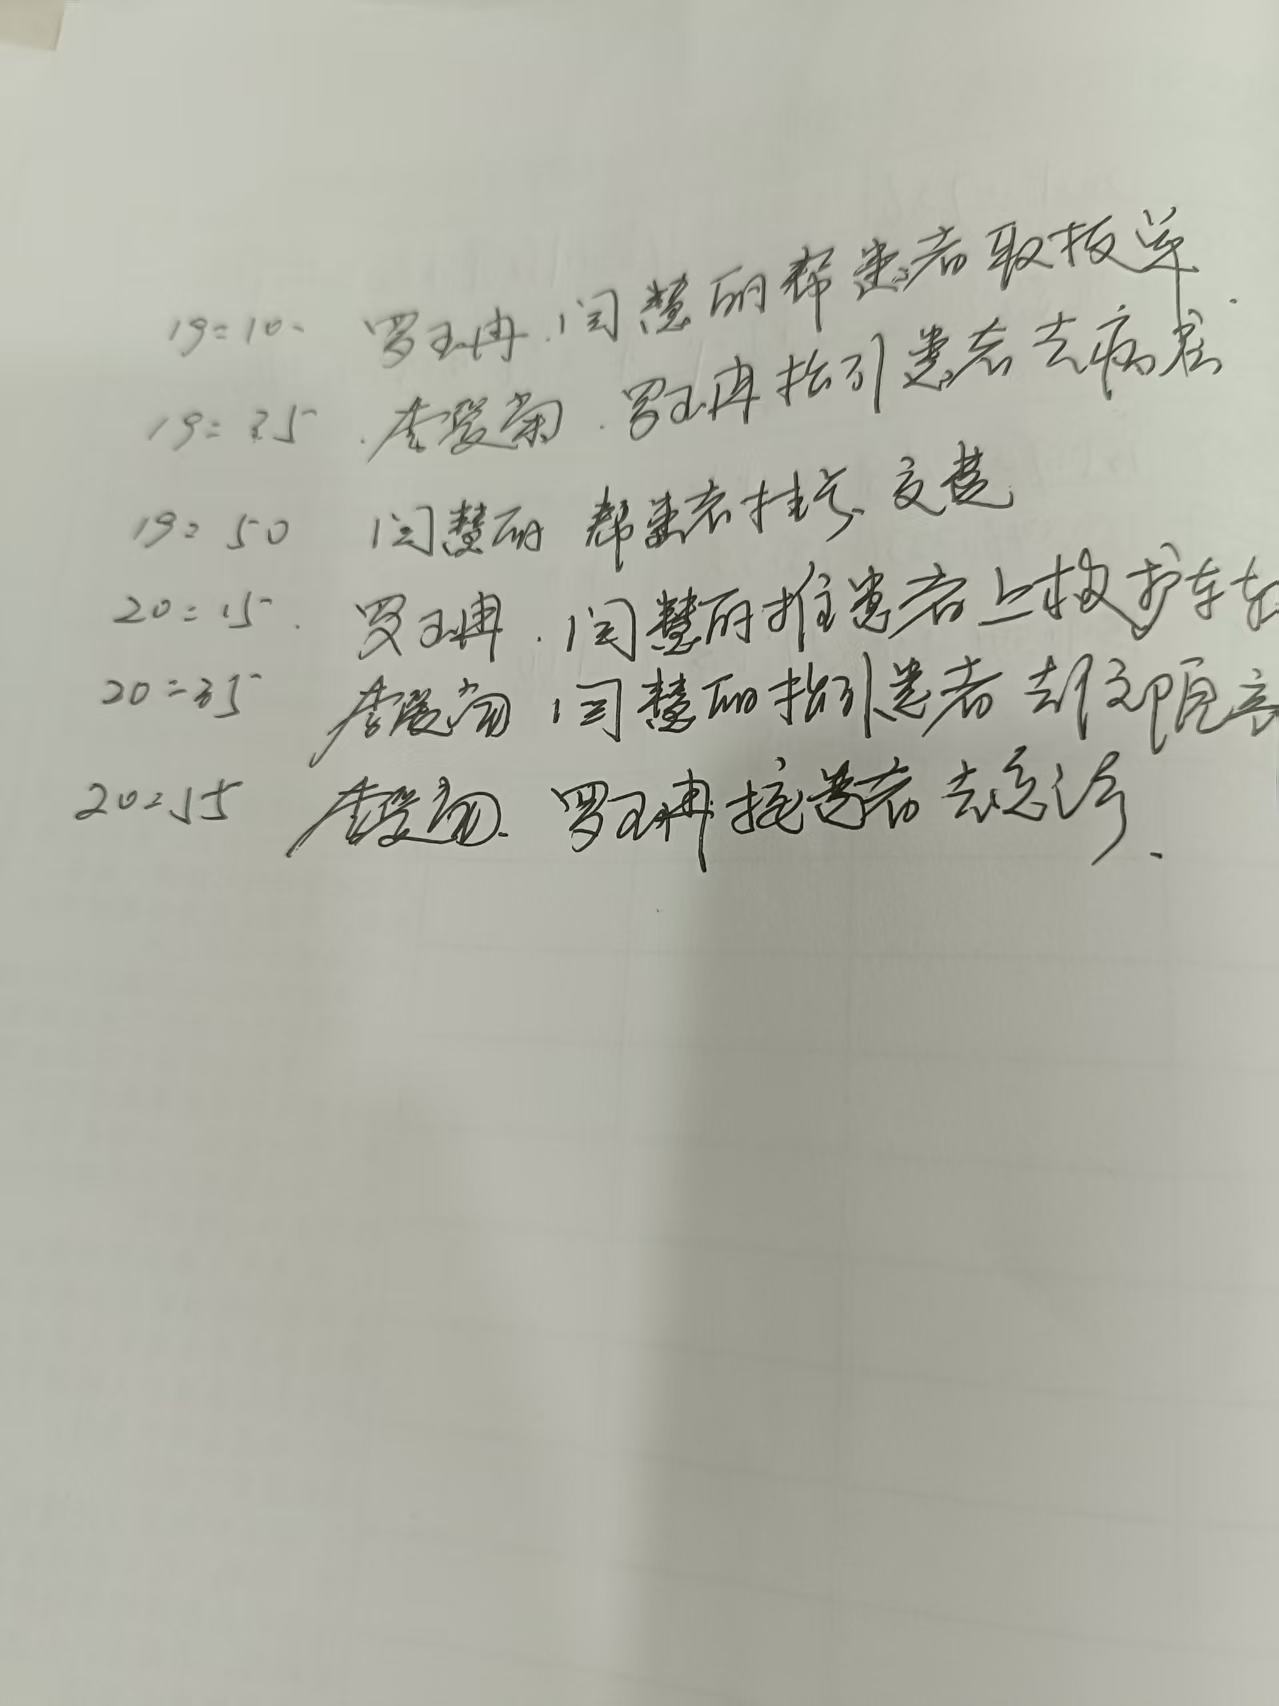 19:10、罗玉冉、闫慧丽帮患者取报单.
19:25、李爱菊、罗玉冉指引患者去病房
19:50 闫慧丽 帮患者挂号、交费
20:15、罗玉冉、闫慧丽推患者上救护车
20:35 李爱菊 闫慧丽指引患者去
20:55 李爱菊、罗玉冉接患者去急诊.